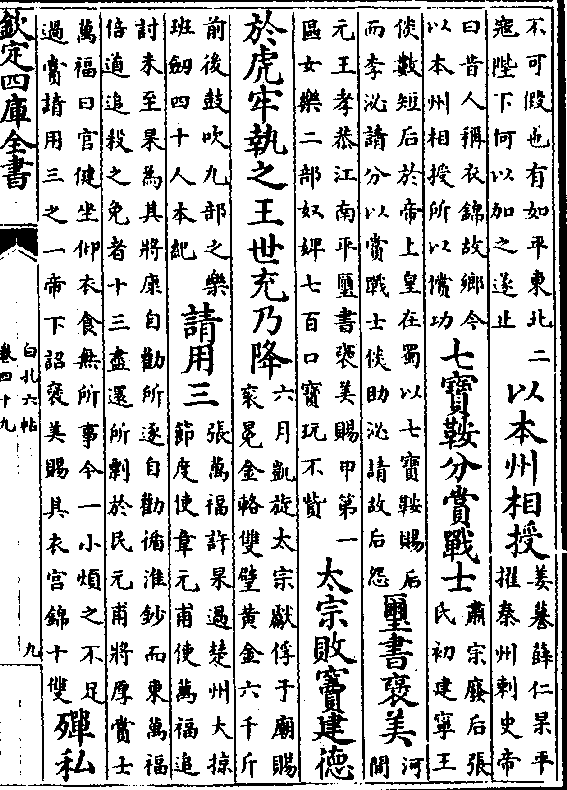 不可假也有如平東北二
寇陛下何以加之遂止
以本州相授
姜謩薛仁杲平
擢秦州刺史帝
曰昔人稱衣錦故鄉今
以本州相授所以償功
七寶鞍分賞戰士
肅宗廢后張
氏初建寧王
倓數短后於帝上皇在蜀以七寶鞍賜后
而李泌請分以賞戰士倓助泌請故后怨
璽書褒美
河
間
元王孝恭江南平璽書褒美賜甲第一
區女樂二部奴婢七百口寶玩不貲
太宗敗竇建德
於虎牢執之王世充乃降
六月凱旋太宗獻俘于廟賜
衮冕金輅雙璧黄金六千斤
前後鼓吹九部之樂
班劒四十人本紀
請用三
張萬福許杲過楚州大掠
節度使韋元甫使萬福追
討未至杲為其將康自勸所逐自勸循淮鈔而東萬福
倍道追殺之免者十三盡還所剽於民元甫將厚賞士
萬福曰官健坐仰衣食無所事今一小煩之不足
過賞請用三之一帝下詔褒美賜其衣宫錦十雙
殫私
欽定四庫全書
白孔六帖
卷四十九
九